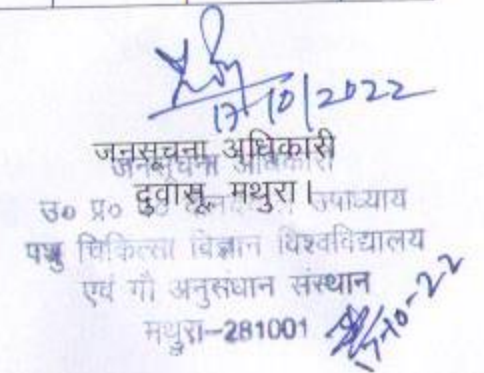 17/10/2022
जनसूचना अधिकारी
जनसूचना अधिकारी
दुवासू, मथुरा।
उ० प्र० उपाध्याय
पशु चिकित्सा विज्ञान विश्वविद्यालय
एवं गौ अनुसंधान संस्थान
मथुरा-281001
17-10-22